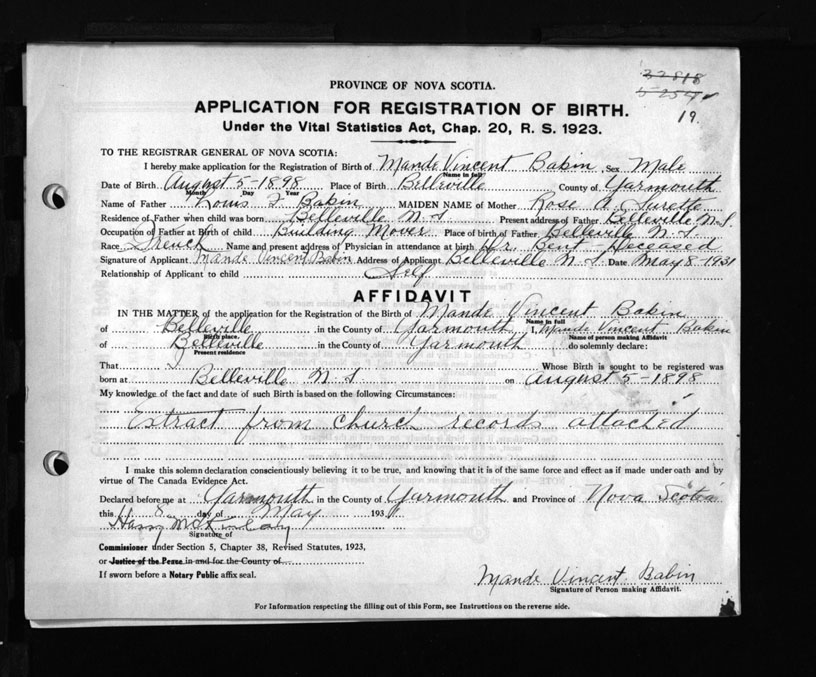 22818
5254
19.
PROVINCE OF NOVA SCOTIA.
APPLICATION FOR REGISTRATION OF BIRTH.
Under the Vital Statistics Act, Chap. 20, R. S. 1923.
TO THE REGISTRAR GENERAL OF NOVA SCOTIA:
I hereby make application for the Registration of Birth of Mande Vincent Babin Sex Male
Name in full
Date of Birth August 5-1898 Place of Birth Belleville County of Yarmouth
Month Day Year
Name of Father Louis F. Babin MAIDEN NAME of Mother Rose A. Surette
Residence of Father when child was born Belleville N S Present address of Father Belleville N.S.
Occupation of Father at Birth of child Building Mover Place of birth of Father Belleville N. S.
Race French Name and present address of Physician in attendance at birth Dr. Bent Deceased
Signature of Applicant Mande Vincent Babin Address of Applicant Belleville N S Date May 8-1931
Relationship of Applicant to child Self
AFFIDAVIT
IN THE MATTER of the application for the Registration of the Birth of Mande Vincent Babin
Name in full
of Belleville in the County of Yarmouth I, Mande Vincent Babin
Birth place. Name of person making Affidavit
of Belleville in the County of Yarmouth do solemnly declare:
Present residence
That Whose Birth is sought to be registered was
born at Belleville N. S on August 5-1898
My knowledge of the fact and date of such Birth is based on the following Circumstances:
Extract from church records attached
I make this solemn declaration conscientiously believing it to be true, and knowing that it is of the same force and effect as if made under oath and by
virtue of The Canada Evidence Act.
Declared before me at Yarmouth in the County of Yarmouth and Province of Nova Scotia
this 8 day of May 1931
Harry
Signature of
Commissioner under Section 5, Chapter 38, Revised Statutes, 1923,
or Justice of the Peace in and for the County of
If sworn before a Notary Public affix seal.
Mande Vincent Babin
Signature of Person making Affidavit.
For Information respecting the filling out of this Form, see Instructions on the reverse side.